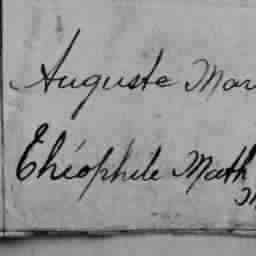 Auguste Mar
Théophile Math